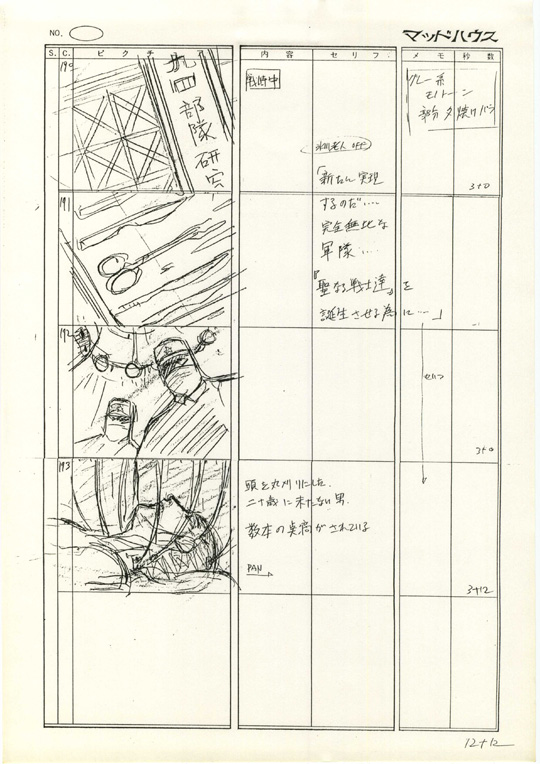 NO.
マッドハウス
S. C. ピクチ 内容 セリフ メモ 秒数
190
九四部隊研究
戦時中
グレー系
モノトーン
部分夕焼けパラ
老人 OFF
「新たに実現
3+0
191
するのだ…
完全無比な
軍隊…
『聖なる戦士達』を
誕生させる為に…」
192
セリフ
3+0
193
頭を丸刈りにした
二十歳に未たない男
数本の点滴がされている
PAN
3+12
12+12